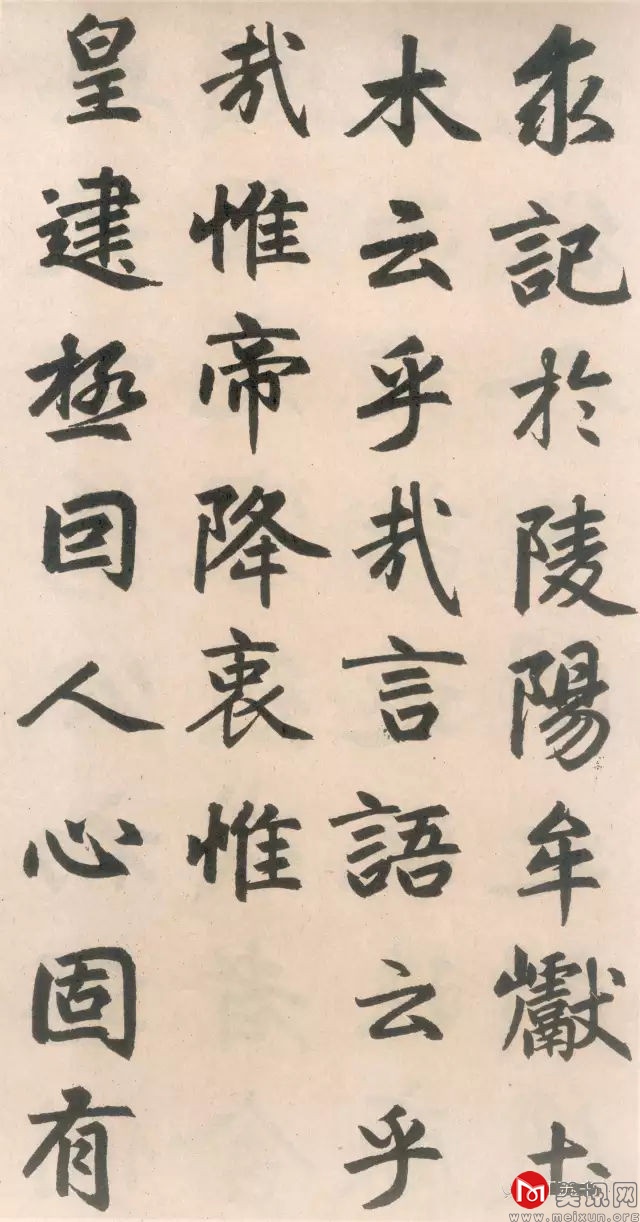 求記於陵陽牟巘土
木云乎哉言語云乎
哉惟帝降衷惟
皇建極因人心固有
美讯网
www.meixun.org